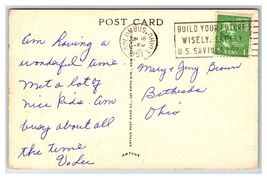 POST CARD
COLUMBUS, OHIO
BUILD YOUR FUTURE
WISELY, SAFELY
U.S. SAVINGS
Am having a
wonderful time
Met a lot of
nice kids. Am
busy about all
the time
Mary & Gary Brown
Bethesda
Ohio
ARTVUE